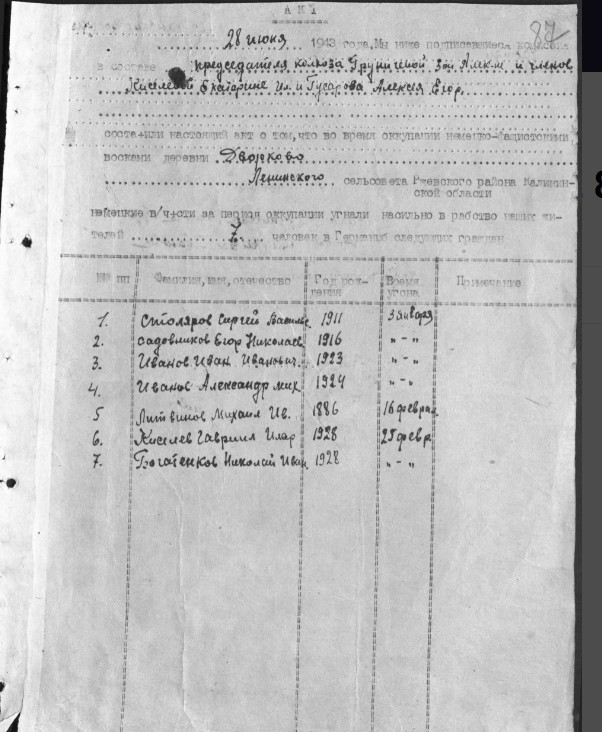 АКТ
87
28 июня 1943 года, Мы ниже подписавшиеся комиссия
в составе председателя колхоза Груничевой Зои Алекм и членов
Киселевой Екатерине Ил. и Гусарова Алексея Егор.
составили настоящий акт о том, что во время оккупации немецко-фашистскими
восками деревни Дворково
Ленинского сельсовета Ржевского района Калинин-
ской области
немецкие в/части за период оккупации угнали насильно в рабство наших жи-
телей 7 человек в Германию следующих граждан
№№ пп Фамилия, имя, отечество Год рож- Время Примечание
дения угона
1. Столяров Сергей Василье. 1911 3 января
2. Садовников Егор Николаев 1916 „ - „
3. Иванов Иван Иванович. 1923 „ - „
4. Иванов Александр Мих 1924 „ - „
5 Литвинов Михаил Ив. 1886 16 феврал
6. Киселев Гавриил Илар 1928 25 февр
7. Богатенков Николай Иван 1928 „ - „